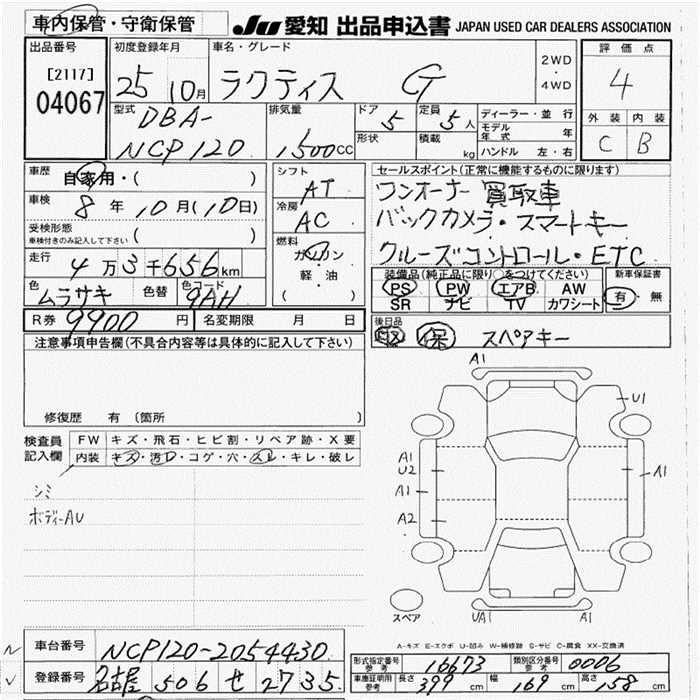 車内保管・守衛保管 Ju 愛知 出品申込書 JAPAN USED CAR DEALERS ASSOCIATION
出品番号 初度登録年月 車名・グレード 2WD 4WD 評価点
[2117] 25 10月 ラクティス G 4
04067
型式 排気量 ドア 定員 ディーラー・並行 外装 内装
DBA- 5 5人 モデル年式 年 C B
NCP120 1500CC 形状 積載 kg ハンドル 左・右
車歴 自家用・( ) シフト AT セールスポイント(正常に機能するものに限ります)
車検 8年10月(10日) 冷房 AC ワンオーナー 買取車
受検形態 車検付きのみ記入して下さい ( ) バックカメラ・スマートキー
走行 4万3千656km 燃料 ガソリン クルーズコントロール・ETC
軽油
( )
色 ムラサキ 色替 色コード 9AH
装備品(純正品に限り○をつけてください) 新車保証書
PS PW エアB AW 有・無
SR ナビ TV カワシート
R券 9900円 名変期限 月 日
後日品 取 保 スペアキー
注意事項申告欄(不具合内容等は具体的に記入して下さい)
修復歴 有 (箇所 )
検査員記入欄 FW キズ・飛石・ヒビ割・リペア跡・X要
内装 キズ・汚レ・コゲ・穴・スレ・キレ・破レ
シミ
ボディーAU
A1
U1
A1
U2
A1
A1
A2
スペア UA1 A1
A-キズ E-エクボ U-凹み W-補修跡 S-サビ C-腐食 XX-交換済
車台番号 NCP120-2054430
登録番号 名古屋 506 せ 2735
形式指定番号 参考 16673 類別区分番号 参考 0006
車庫証明用 参考 長さ 399cm 幅 169cm 高さ 158cm